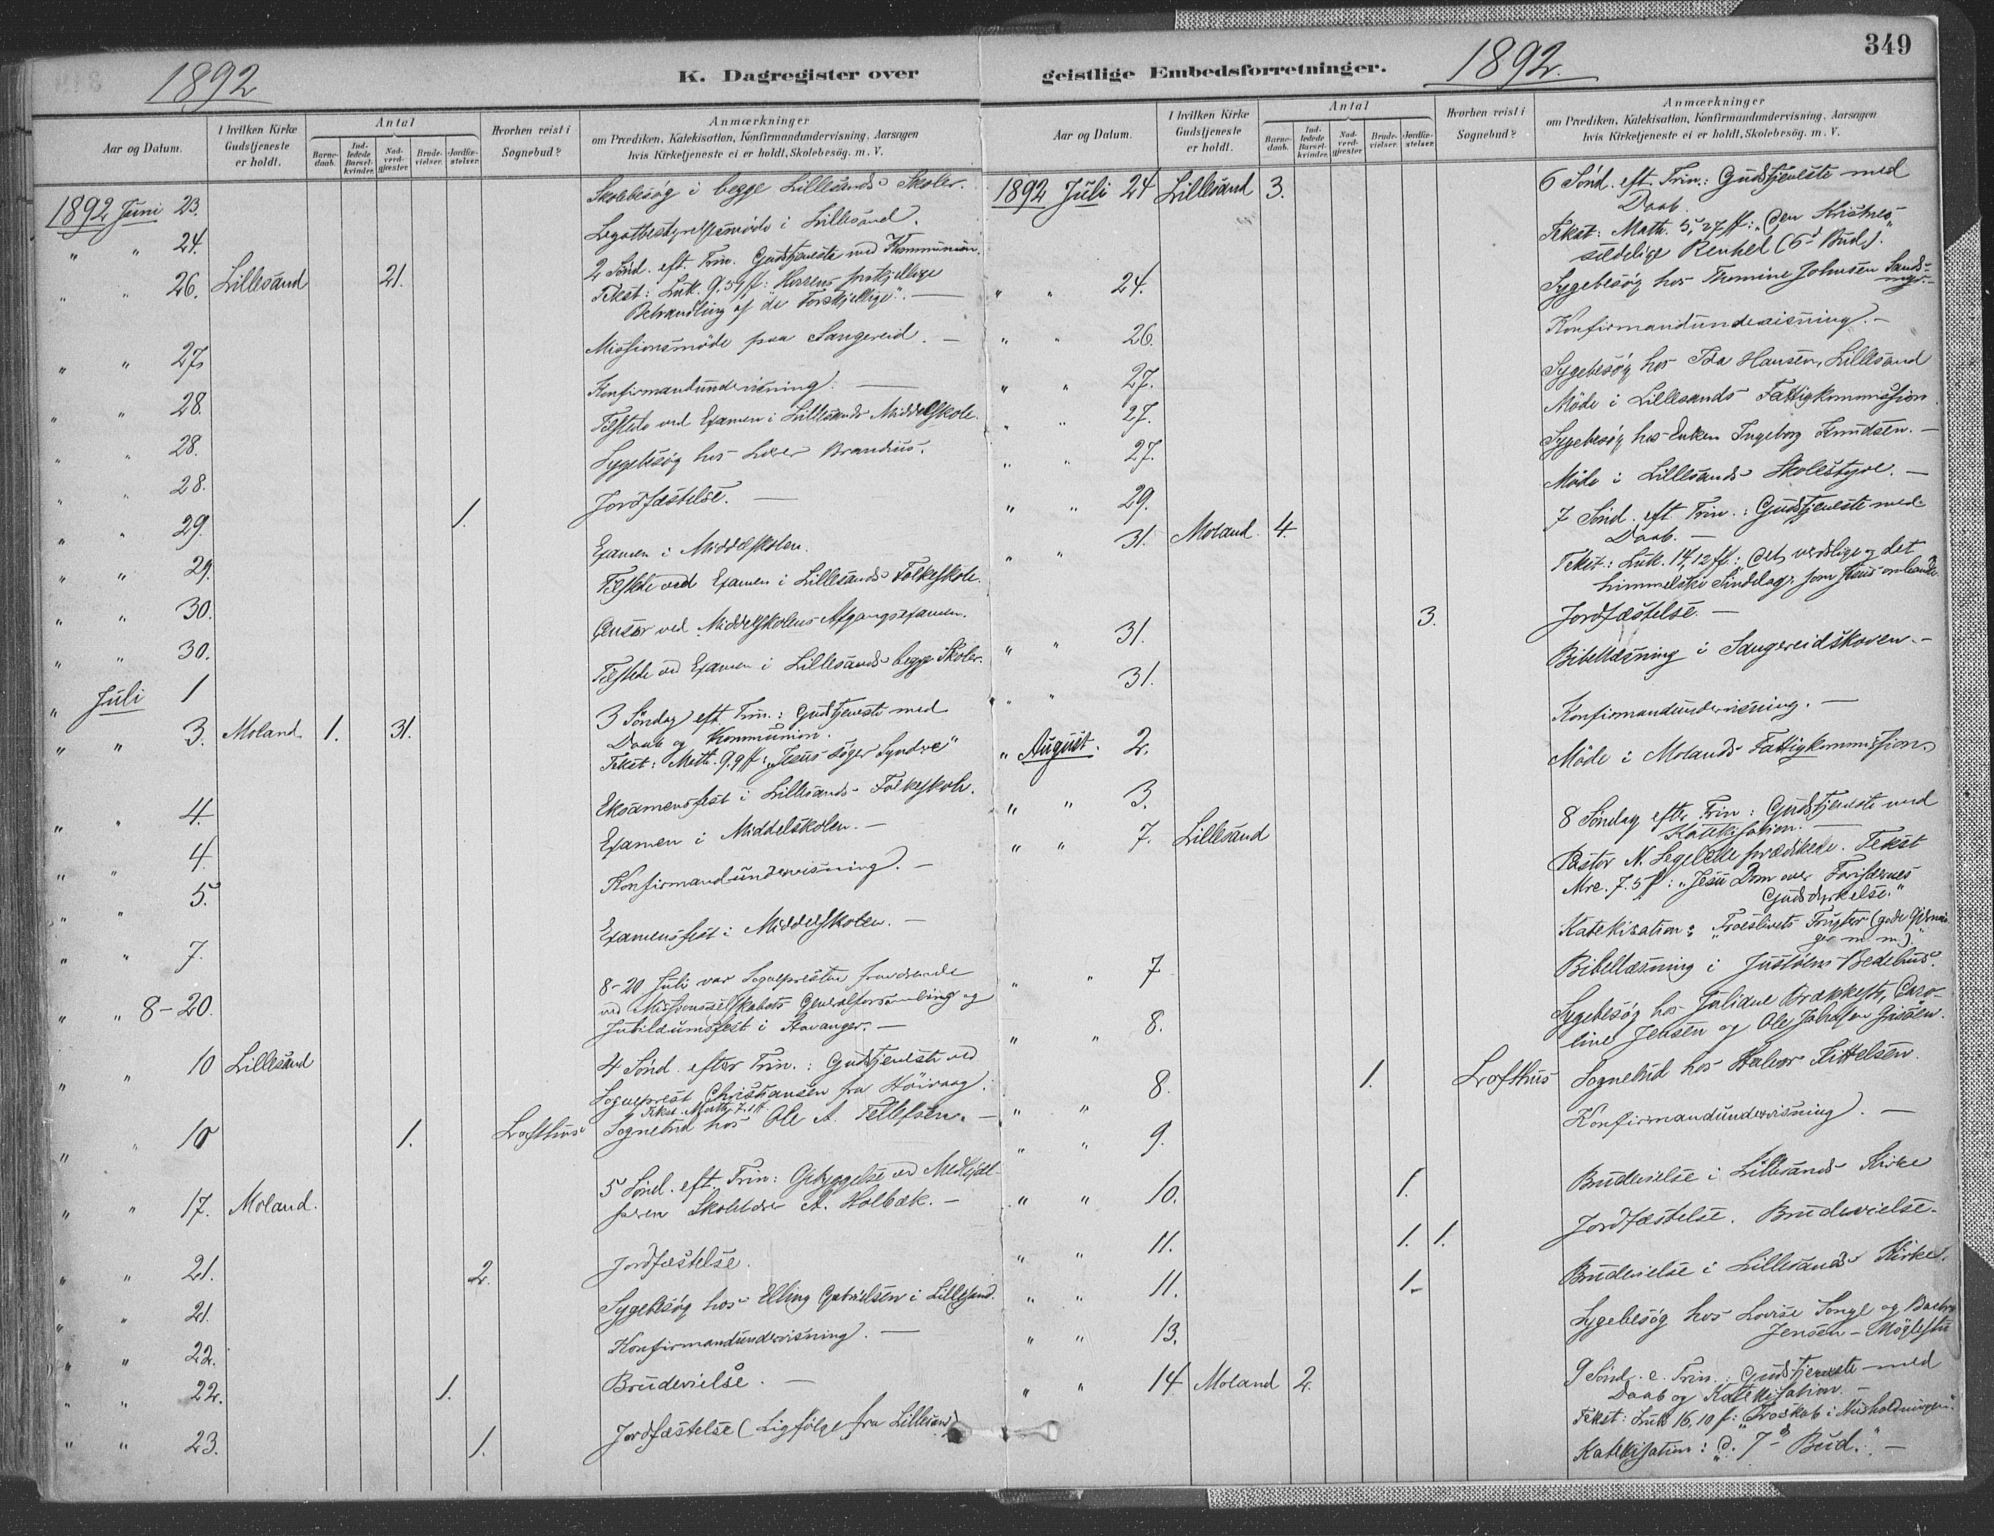 1892
K. Dagregister over
Aar og Datum.
I hvilken Kirke Gudstjeneste er holdt.
Antal
Barnedaab.
Indledede Barselkvinder.
Nadverdgjæster
Brudevielser.
Jordfæstelser.
Hvorhen reist i Sognebud?
Anmærkninger
om Prædiken, Katekisation, Konfirmandundervisning, Aarsagen
hvis Kirketjeneste ei er holdt, Skolebesøg. m. V.
1892 Juni 23. Skolebesøg i begge Lillesands Skoler.
" " 24. Legatbestyrelsesmøde i Lillesand.
" " 26. Lillesand 21. 2 Sønd. eft. Trin. Gudstjeneste med Kommunion.
Tekst: Luk. 9, 59 ff: Herrens forskjellige
Behandling af de Forskjellige". —
" " 27. Missionsmøde paa Sangereid. —
" " 28. Konfirmandundervisning. —
" " 28. Tilstede ved Examen i Lillesands Middelskole.
" " 28. Sygebesøg hos Brandius.
" " 29. 1. Jordfæstelse. —
" " 29. Examen i Middelskolen.
" " 30. Tilstede ved Examen i Lillesands Folkeskole.
" " 30. Censor ved Middelskolens Afgangsexamen.
" Juli 1 Tilstede ved Examen i Lillesands begge Skoler.
" " 3. Moland. 1. 31. 3 Søndag eft. Trin.: Gudstjeneste med
Daab og Kommunion.
Tekst: Matth. 9, 9 ff: "Jesus søger Syndre"
" " 4. Eksamensfest i Lillesands Folkeskole.
" " 4. Examen i Middelskolen. —
" " 5. Konfirmandundervisning. —
" " 7. Examensfest i Middelskolen. —
" " 8–20. 8–20 Juli var Sognepresten fraværende
ved Missionsselskabets Generalforsamling og
Jubilæumsfest i Stavanger. —
" " 10 Lillesand 4 Sønd. efter Trin.: Gudstjeneste ved
Sogneprest Christiansen fra Høivaag.
Tekst. Matth. 7, 1 ff.
" " 10 1. Lofthus Sognebud hos Ole A. Tellefsen. —
" " 17. Moland. 5 Sønd. eft. Trin: Opbyggelse ved Medhjæl-
peren Skolelærer A. Holbæk. —
" " 21. 2. Jordfæstelse.
" " 21. Sygebesøg hos Elling Gabrielsen i Lillesand.
" " 22. Konfirmandundervisning. —
" " 22. 1. Brudevielse. —
" " 23. 1. Jordfæstelse (Ligfølge fra Lillesand)
geistlige Embedsforretninger.
1892.
349
Aar og Datum.
I hvilken Kirke Gudstjeneste er holdt.
Antal
Barnedaab.
Indledede Barselkvinder.
Nadverdgjæster
Brudevielser.
Jordfæstelser.
Hvorhen reist i Sognebud?
Anmærkninger
om Prædiken, Katekisation, Konfirmandundervisning, Aarsagen
hvis Kirketjeneste ei er holdt, Skolebesøg. m. V.
1892 Juli 24 Lillesand 3. 6 Sønd. eft. Trin.: Gudstjeneste med
Daab.
Tekst: Matth. 5, 27 ff: "Den Kristnes
sædelige Renhed (6te Bud)."
" " 24. Sygebesøg hos Thomine Johnsen
" " 26. Konfirmandundervisning. —
" " 27. Sygebesøg hos Ida Hansen, Lillesand
" " 27. Møde i Lillesands Fattigkommission.
" " 27. Sygebesøg hos Enken Ingeborg Knudsen. —
" " 29. Møde i Lillesands Skolestyre. —
" " 31. Moland. 4. 7 Sønd. eft. Trin.: Gudstjeneste med
Daab. —
Tekst: Luk. 14, 12 ff: Det verdslige og det
himmelske Sindelag, som Jesus
" " 31. 3. Jordfæstelse. —
" " 31. Bibellæsning i Sangereidskoven. —
" August. 2. Konfirmandundervisning. —
" " 3. Møde i Molands Fattigkommission.
" " 7. Lillesand 8 Søndag efter Trin: Gudstjeneste med
Katekisation. —
Pastor N. prædikede. Tekst
Mrc. 7, 5 ff: "Jesu Dom over Farisæernes
Gudsdyrkelse."
Katekisation: "Troeslivets Frugter (gode Gjernin-
ger m. m.)"
" " 7 Bibellæsning i Justøens Bedehus.
" " 8. Sygebesøg hos Julidne Brækkestø, Caro-
line Jensen og Ole Johnsen
" " 8. 1. Lofthus Sognebud hos Halvor Kittelsen.
" " 9. Konfirmandundervisning. —
" " 10. 1. Brudevielse i Lillesands Kirke
" " 11. 1. 1. Jordfæstelse. Brudevielse.
" " 11. 1. Brudevielse i Lillesands Kirke.
" " 13. Sygebesøg hos Lovise Songe og
Jensen – Møglestu
" " 14 Moland 2. 9 Sønd. e. Trin.: Gudstjeneste med
Daab og Katekisation. —
Tekst: Luk 16, 10 f: "Troskab i Husholdningen."
Katekisation: "D. 7de Bud." —